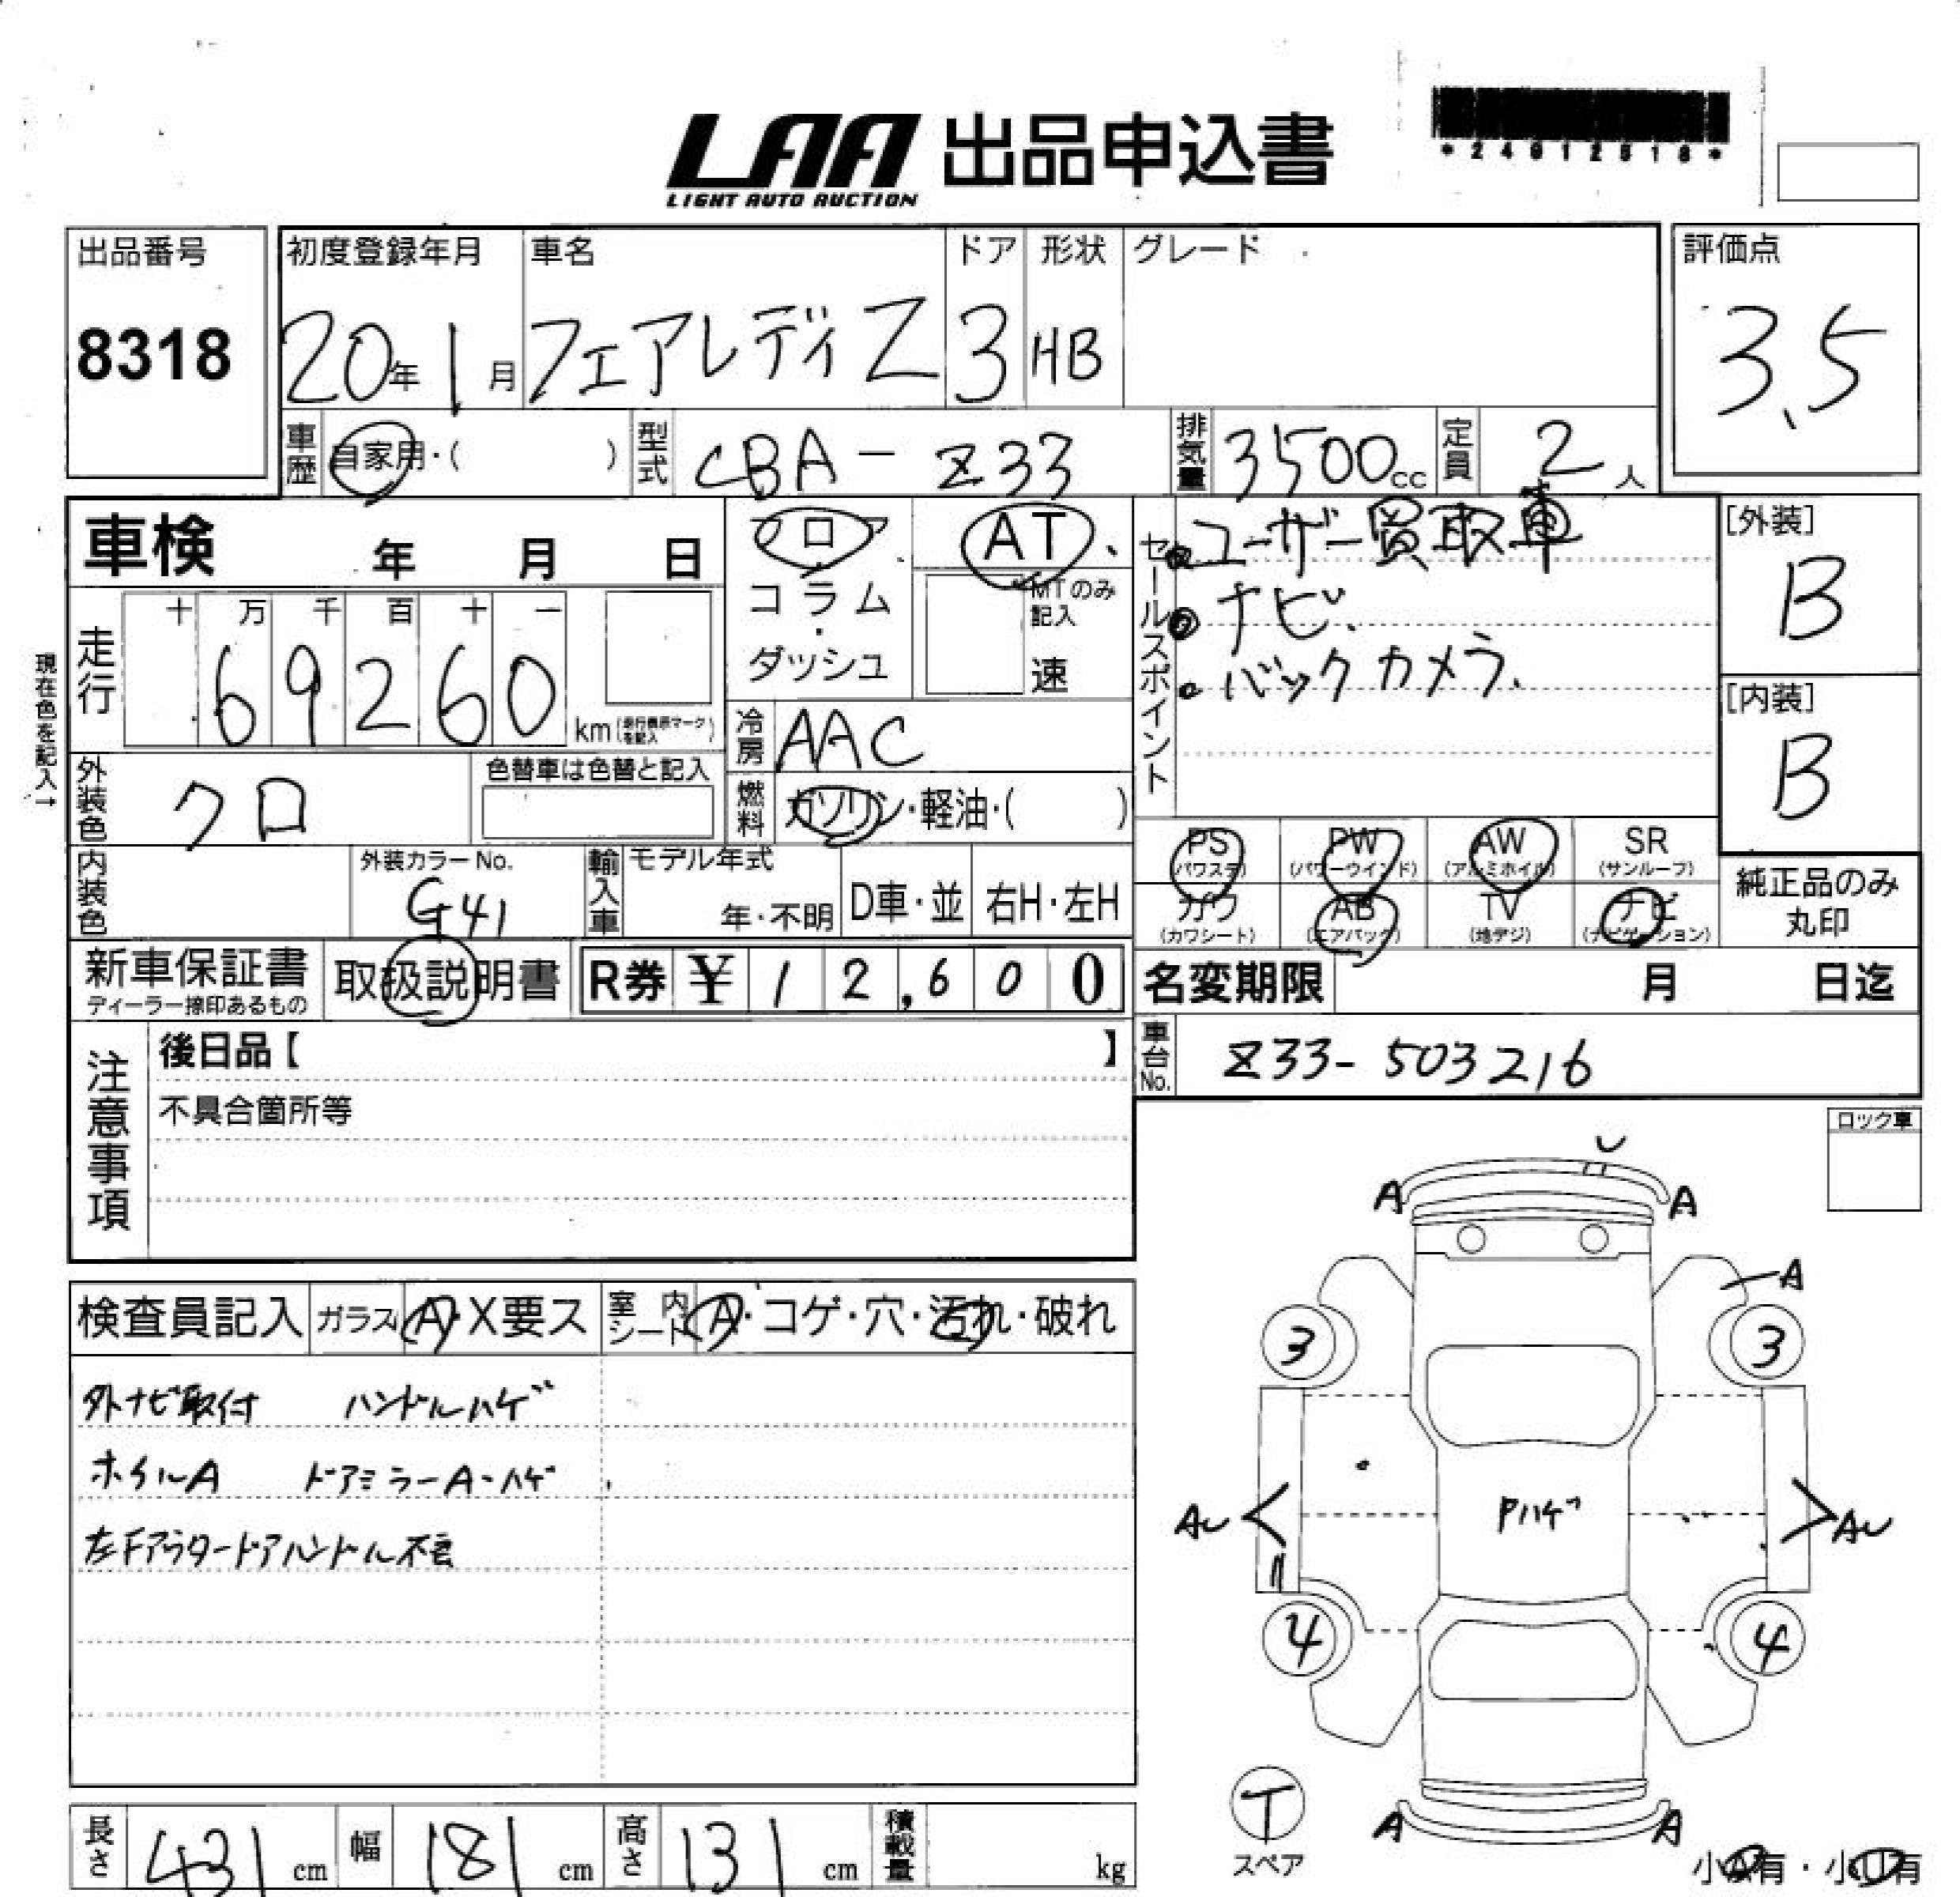 LAA 出品申込書
LIGHT AUTO AUCTION
出品番号
8318
初度登録年月
20年1月
車名
フェアレディZ
ドア
3
形状
HB
グレード
評価点
3.5
車歴
自家用・( )
型式
CBA-Z33
排気量
3500cc
定員
2人
車検 年 月 日
フロア
コラム
・
ダッシュ
AT
MTのみ記入
速
セールスポイント
ユーザー買取車
ナビ、
バックカメラ、
[外装]
B
[内装]
B
現在色を記入→
走行
十 万 千 百 十 一
69260
km(走行表示マークを記入)
冷房
AAC
外装色
クロ
色替車は色替と記入
燃料
ガソリン・軽油・( )
PS
(パワステ)
PW
(パワーウインド)
AW
(アルミホイル)
SR
(サンルーフ)
カワ
(カワシート)
AB
(エアバッグ)
TV
(地デジ)
ナビ
(ナビゲーション)
純正品のみ
丸印
内装色
外装カラーNo.
G41
輸入車
モデル年式
年・不明
D車・並
右H・左H
新車保証書
ディーラー捺印あるもの
取扱説明書
R券 ¥12,600
名変期限 月 日迄
注意事項
後日品【 】
不具合箇所等
車台No.
Z33-503216
ロック車
検査員記入
ガラス
A・X要ス
室内シート
A・コゲ・穴・汚れ・破れ
外ナビ取付 ハンドルハゲ
ホイルA ドアミラーA・ハゲ
左Fアウタードアハンドル不良
U
A A
A
3 3
AU Pハゲ AU
4 4
T
スペア
A A
小A有・小U有
長さ
431cm
幅
181cm
高さ
131cm
積載量
kg